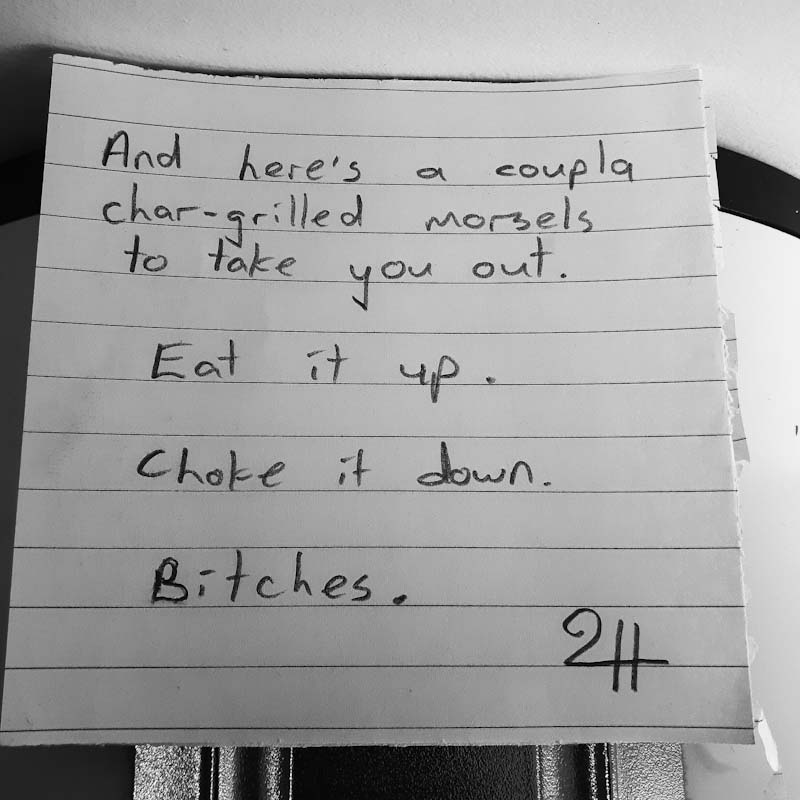 And here's a coupla
char-grilled morsels
to take you out.
Eat it up.
Choke it down.
Bitches.